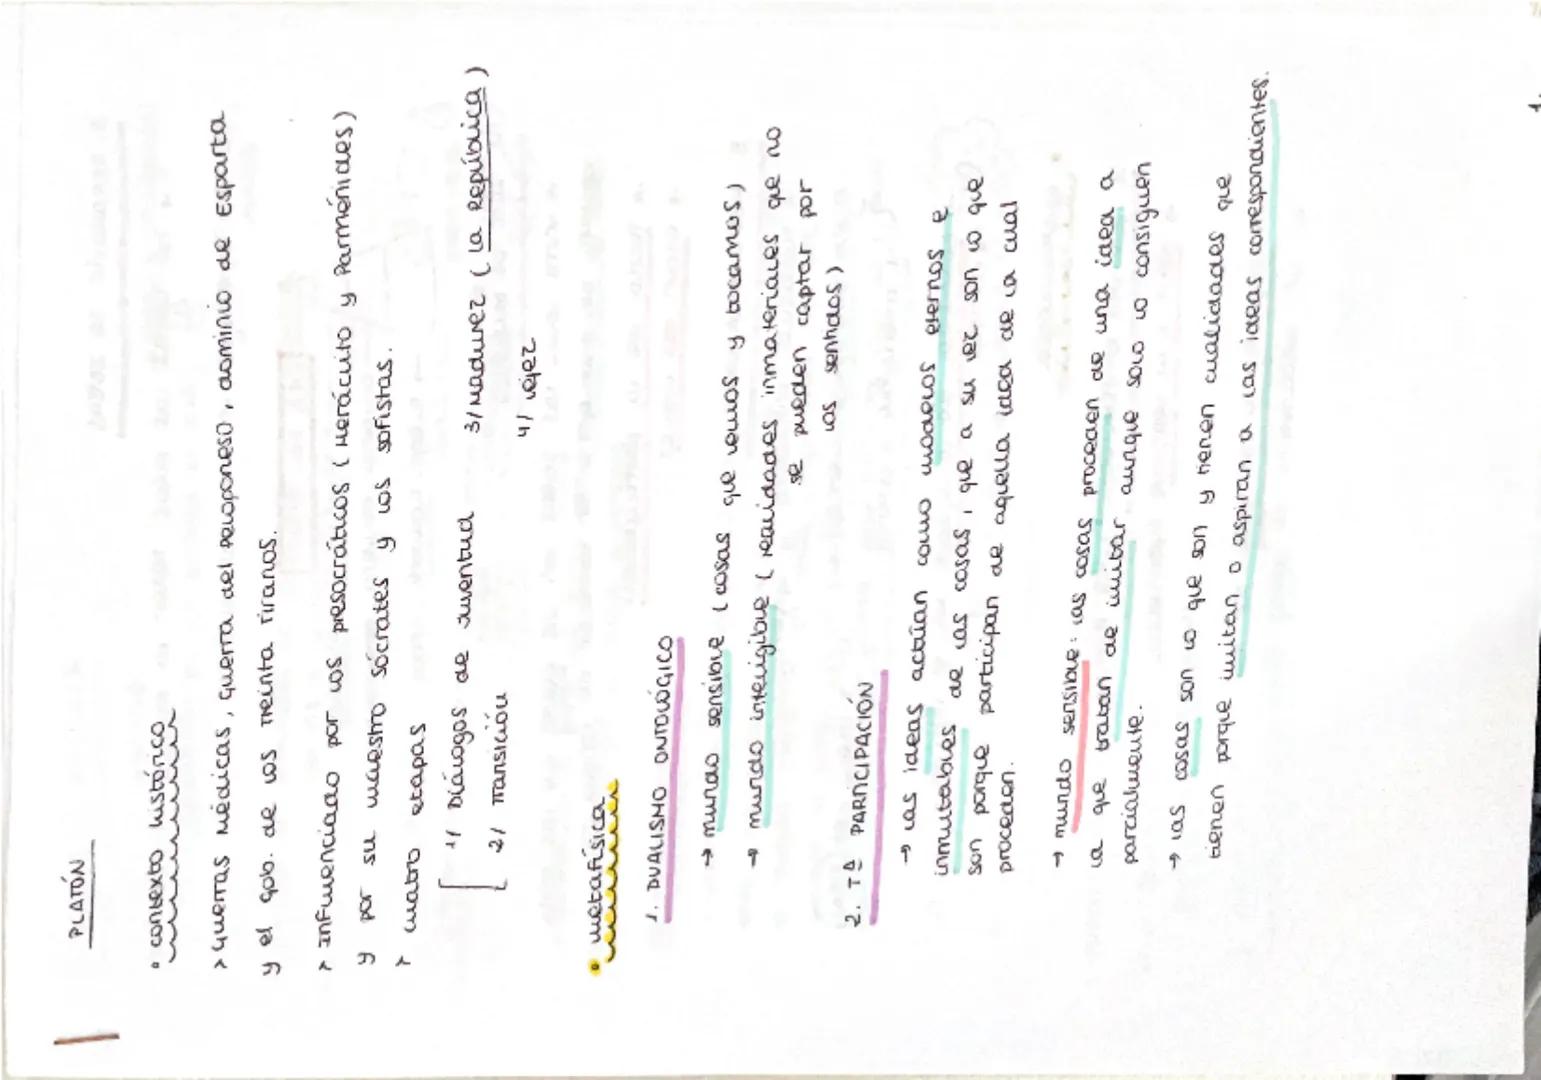 PLATÓN
• contexto histórico
> Guerras Médicas, Guerra del Peloponeso, dominio de Esparta
y el gob. de los Treinta Tiranos.
> Influenciado por los presocráticos (Heráclito y Parménides)
y por su maestro Sócrates y los sofistas.
> cuatro etapas
1/ Diálogos de Juventud 3/ Madurez (La República)
2/ Transición 4/ vejez
• metafísica
1. DUALISMO ONTOLÓGICO
→ mundo sensible (cosas que vemos y tocamos)
→ mundo inteligible (realidades inmateriales que no
se pueden captar por
los sentidos)
2. Tª PARTICIPACIÓN
→ las ideas actúan como modelos eternos e
inmutables de las cosas, que a su vez son lo que
son porque participan de aquella idea de la cual
proceden.
→ mundo sensible: las cosas proceden de una idea a
la que tratan de imitar aunque solo lo consiguen
parcialmente.
→ las cosas son lo que son y tienen cualidades que
tienen porque imitan o aspiran a las ideas correspondientes.
1.